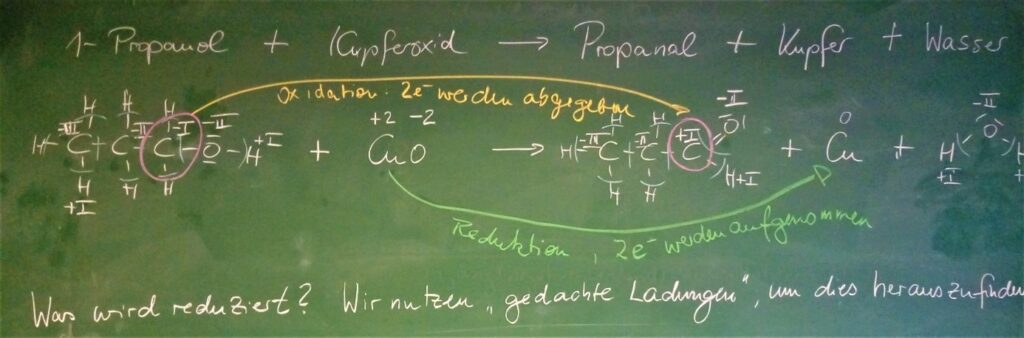 1-Propanol + Kupferoxid → Propanal + Kupfer + Wasser
Oxidation: 2e⁻ werden abgegeben
H H H
-III -II -I -II
H C C C O H +I + CuO → H C C C + Cu + H H
+2 -2
-II -II +I
H H
-II
O
H +I
0
-II
O
H H H
+I
H H
+I
Reduktion, 2e⁻ werden aufgenommen
Was wird reduziert? Wir nutzen „gedachte Ladungen", um dies herauszufinden